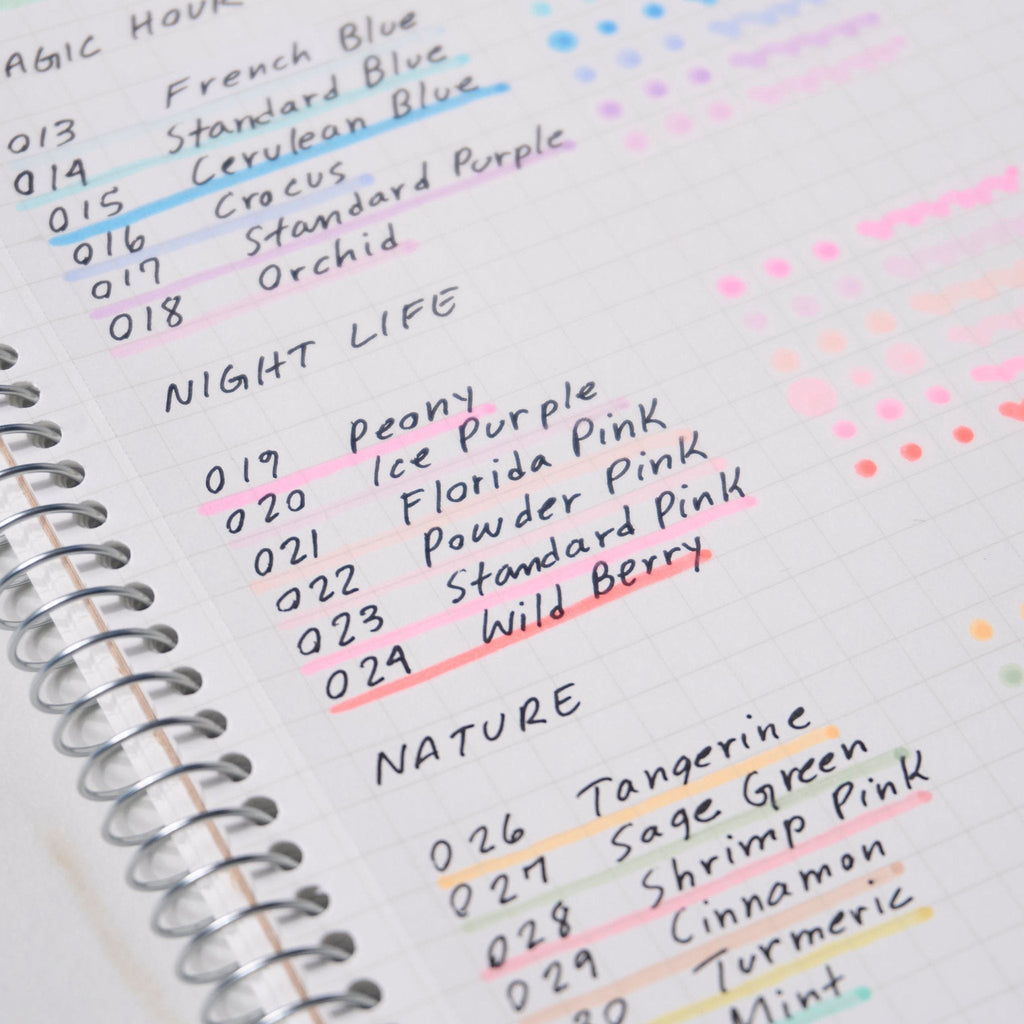 AGIC HOUR
013 French Blue
014 Standard Blue
015 Cerulean Blue
016 Crocus
017 Standard Purple
018 Orchid
NIGHT LIFE
019 Peony
020 Ice Purple
021 Florida Pink
022 Powder Pink
023 Standard Pink
024 Wild Berry
NATURE
026 Tangerine
027 Sage Green
028 Shrimp Pink
029 Cinnamon
30 Turmeric
Mint